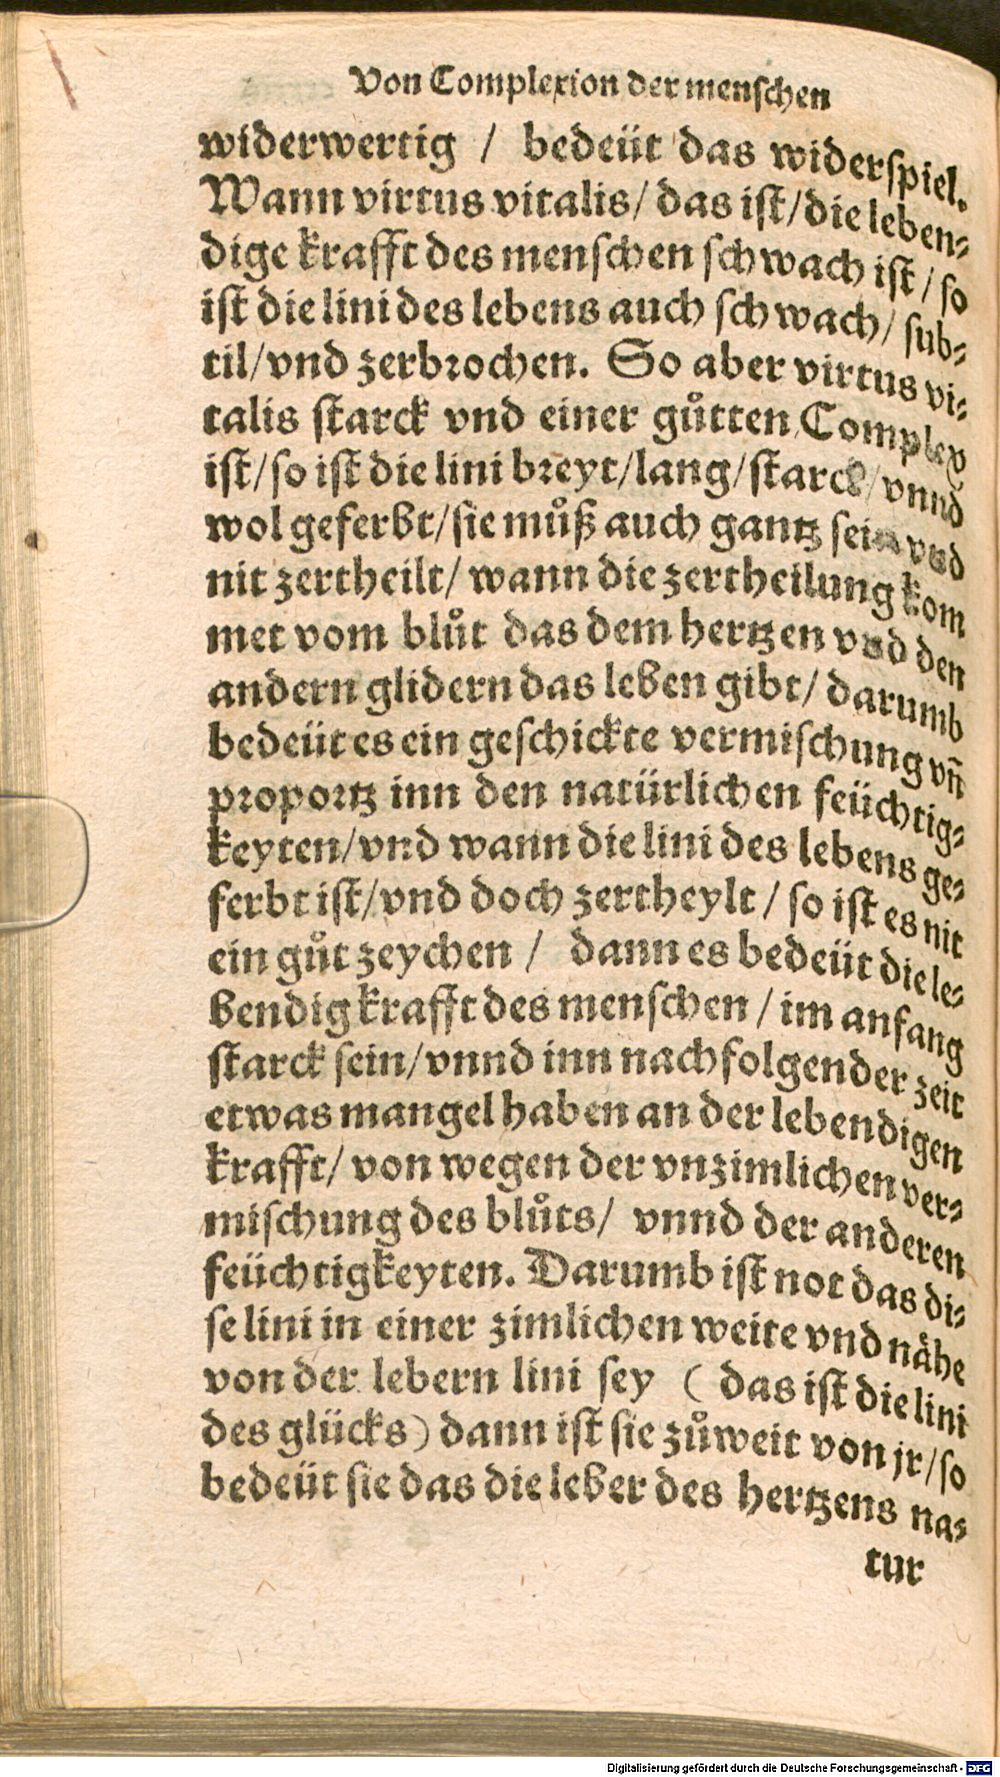 Von Complexion der menschen
widerwertig / bedeüt das widerspiel.
Wann virtus vitalis/ das ist/die leben⸗
dige krafft des menschen schwach ist / so
ist die lini des lebens auch schwach/ sub⸗
til/vnd zerbrochen. So aber virtus vi⸗
talis starck vnd einer gůtten Complex
ist/so ist die lini breyt/lang/starck/vnnd
wol geferbt/sie můß auch gantz sein vnd
nit zertheilt/ wann die zertheilung kom
met vom blůt das dem hertzen vnd den
andern glidern das leben gibt/ darumb
bedeüt es ein geschickte vermischung vñ
proportz inn den natürlichen feüchtig⸗
keyten/vnd wann die lini des lebens ge⸗
ferbt ist/vnd doch zertheylt / so ist es nit
ein gůt zeychen / dann es bedeüt die le⸗
bendig krafft des menschen / im anfang
starck sein/vnnd inn nachfolgender zeit
etwas mangel haben an der lebendigen
krafft/ von wegen der vnzimlichen ver⸗
mischung des blůts/ vnnd der anderen
feüchtigkeyten. Darumb ist not das di⸗
se lini in einer zimlichen weite vnd nåhe
von der lebern lini sey ( das ist die lini
des glücks) dann ist sie zůweit von jr/so
bedeüt sie das die leber des hertzens na⸗
tur
Digitalisierung gefördert durch die Deutsche Forschungsgemeinschaft - DFG